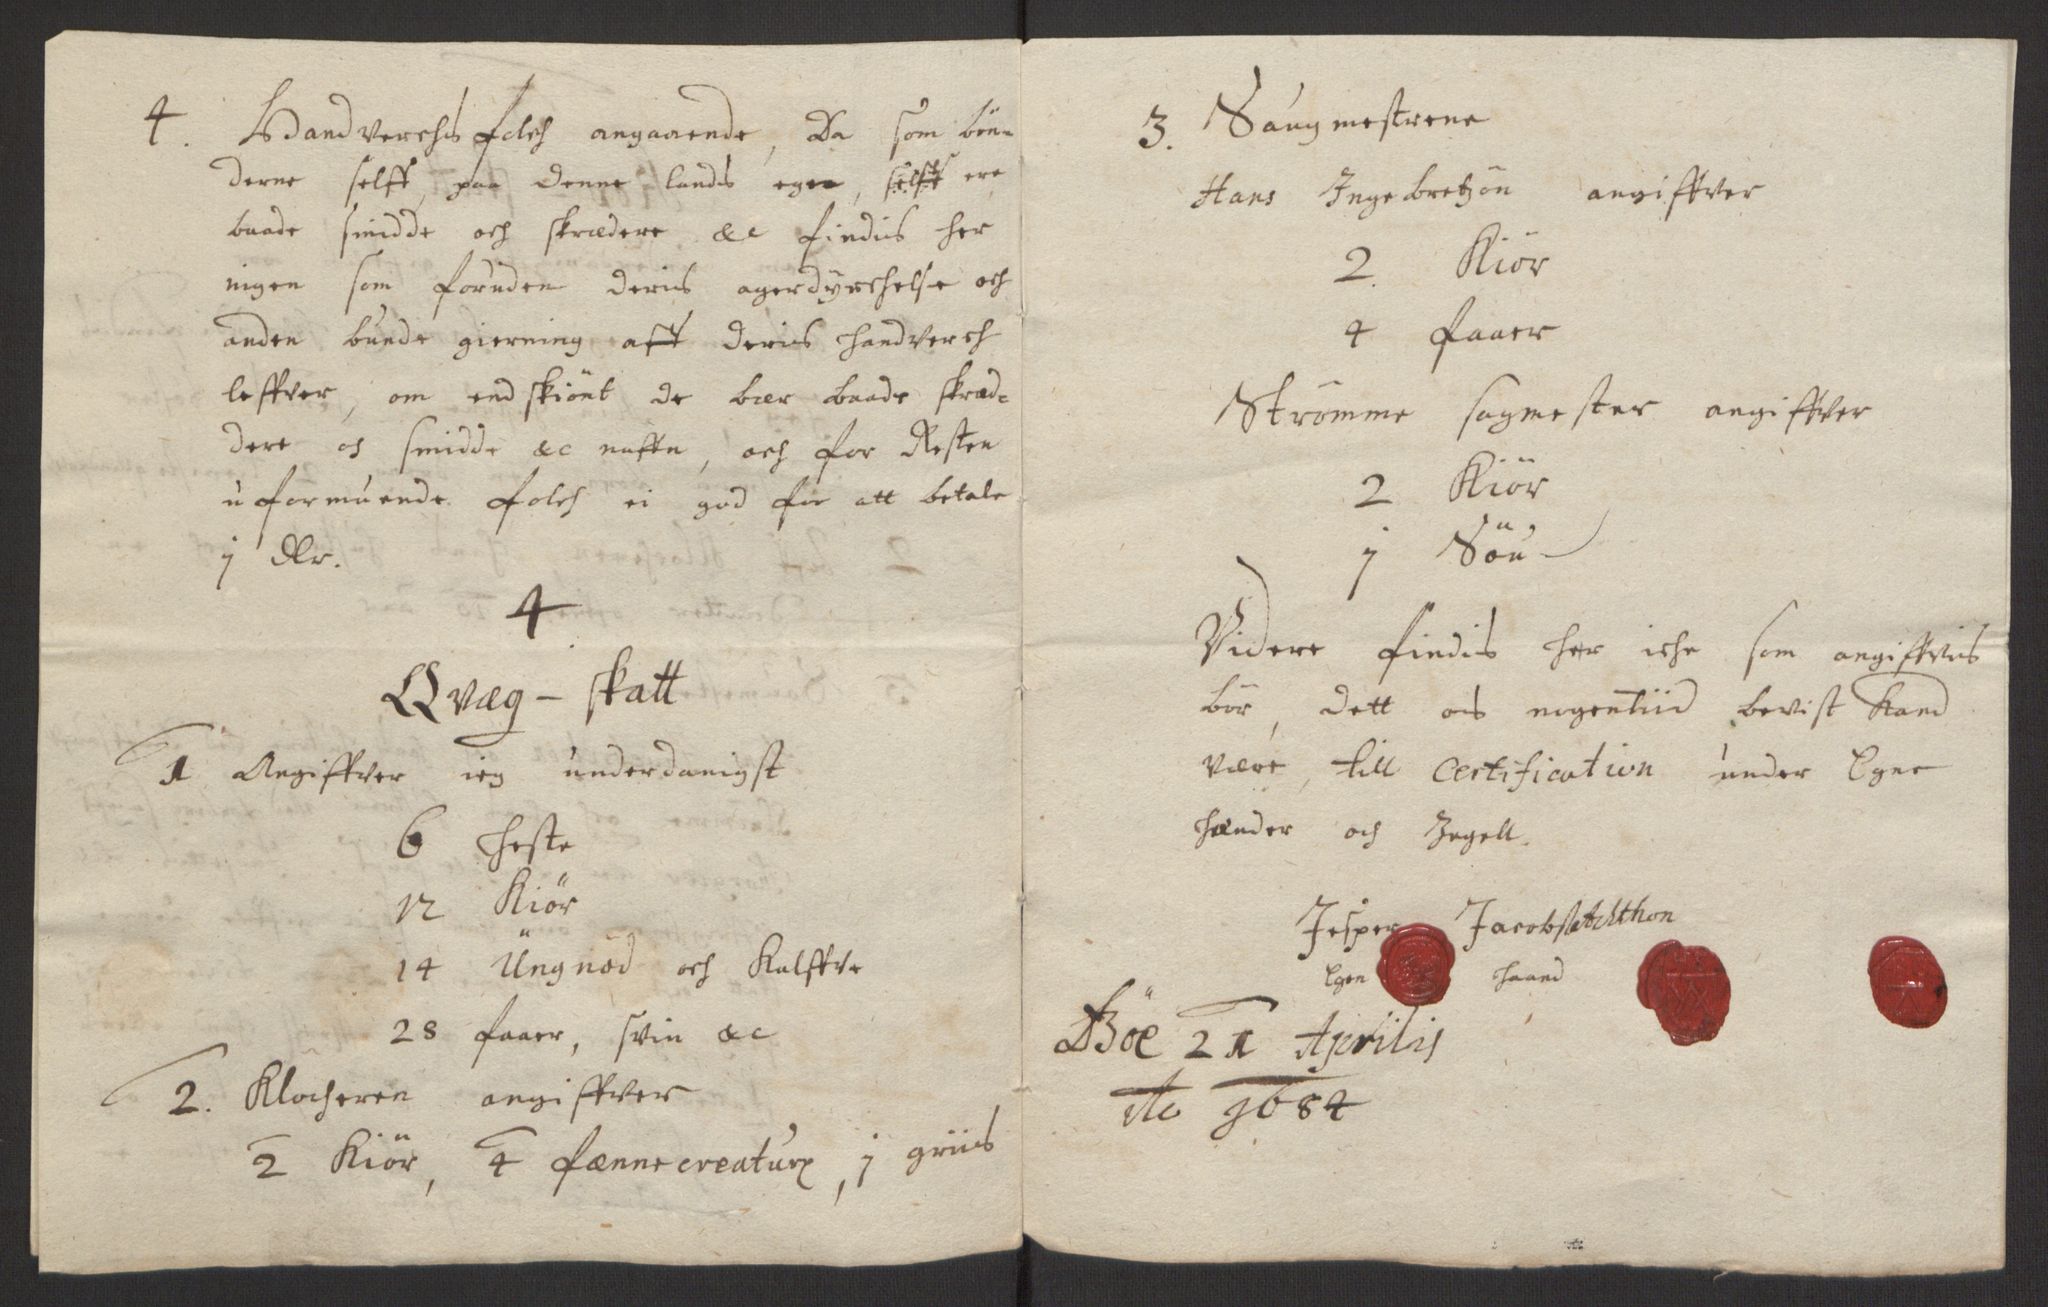 4. Handverchs folch angaaende, Da som bön-
derne selff, paa denne lands egen, selff ere
baade smidde och skrædere &c findis her
ingen som foruden deris agerdyrchelse och
anden bunde gierning aff deris handverch
leffver, om endskiönt de bær baade skræd-
dere och smidde &c naffn, och for Resten
uformuende folch ei god for att betale
j Rdr.
4
Qvæg-skatt
1 Angiffver ieg underdanigst
6 heste
12 Kiör
14 Üngnöd och Kalffve
28 faaer, svin &c
2. Klocheren angiffver
2 Kiör, 4 fænnecreaturr, j griis
3. Saugmestrene
Hans Ingebretzön angiffver
2. Kiör
4 faaer
Strömme sagmester angiffver
2 Kiör
j Söu
Videre findis her iche som angiffvis
bör, dett os nogentiid bevist kand
være, till certification under Egne
hænder och Zegell.
Jesper Jacobs Achthon
Egen haand
Böe 21 Aprilis
Ao 1684